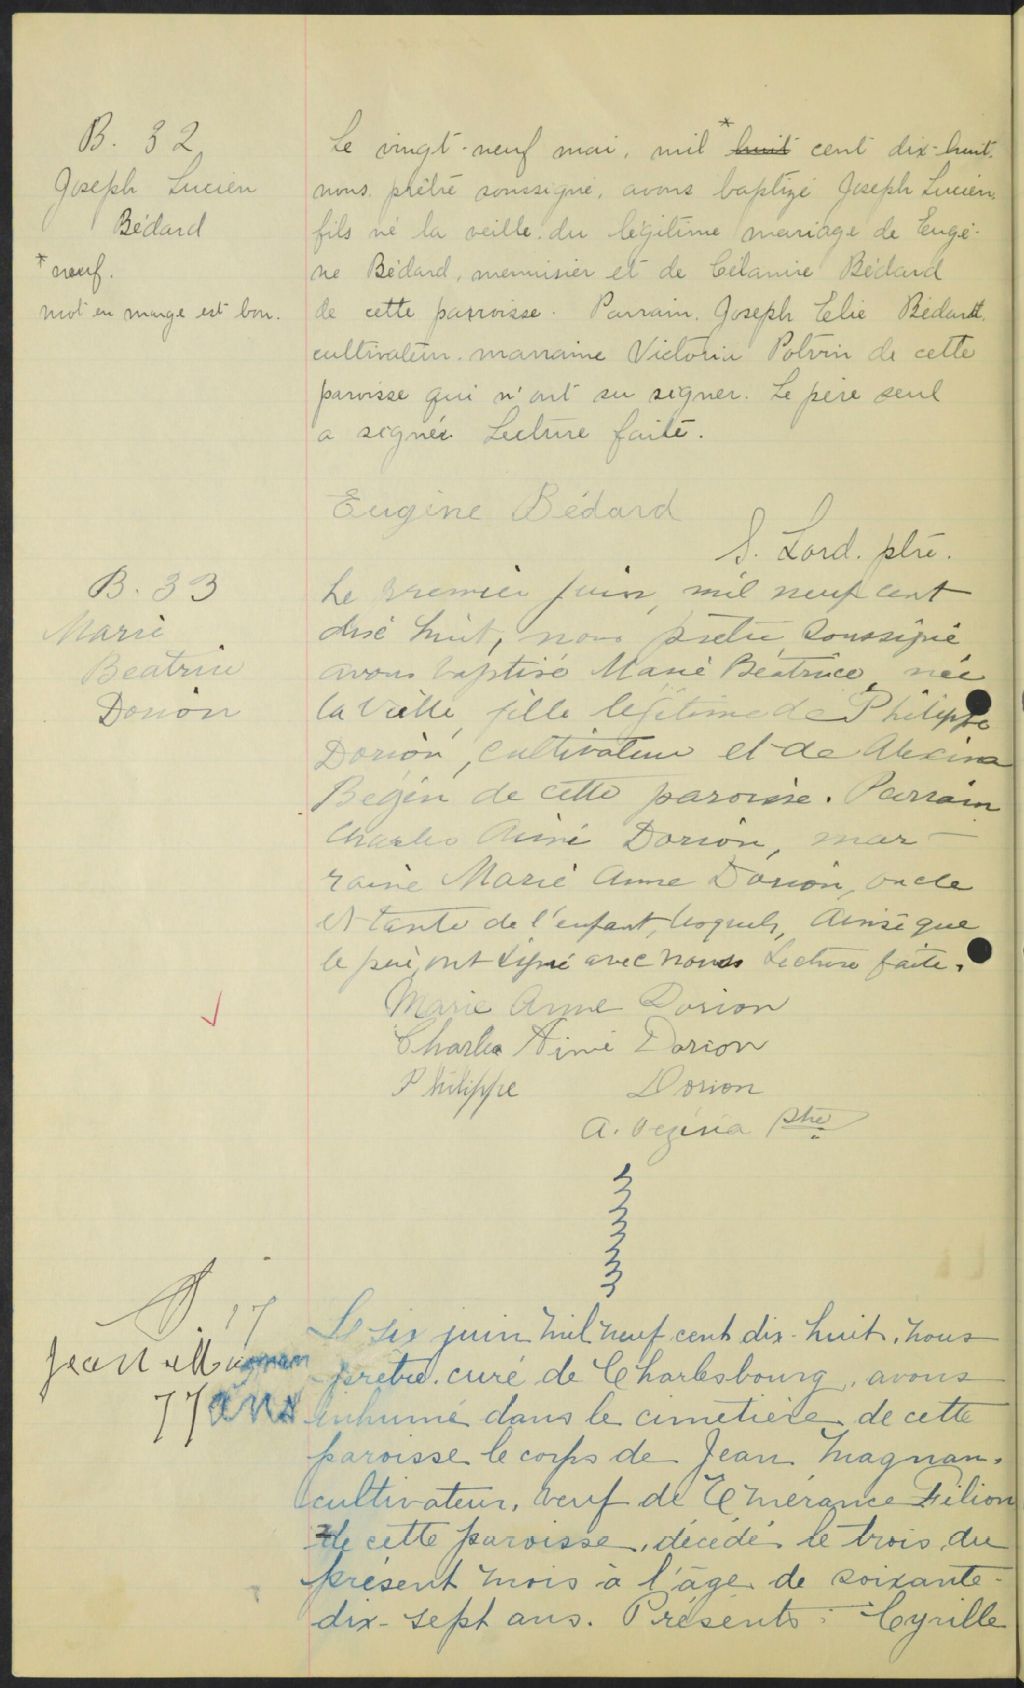 B. 32
Joseph Lucien
Bédard
* neuf.
mot en marge est bon.
Le vingt-neuf mai, mil * huit cent dix-huit,
nous prêtre soussigné, avons baptizé Joseph Lucien,
fils né la veille du légitime mariage de Eugè-
ne Bédard, menuisier et de Célanire Bédard
de cette parroisse. Parrain, Joseph Elie Bédard,
cultivateur, marraine Victoria Potvin de cette
paroisse qui n'ont su signer. Le père seul
a signé. Lecture faite.
Eugène Bédard
S. Lord. ptre.
B. 33
Marie
Beatrice
Dorion
Le premier juin, mil neuf cent
dixe huit, nous prêtre soussigné
avons baptisé Marie Béatrice, née
la veille, fille légitime de Philippe
Dorion, cultivateur et de Alexina
Bégin de cette paroisse. Parrain
Charles Aimé Dorion, mar-
raine Marie Anne Dorion, oncle
et tante de l'enfant, lesquels, ainsi que
le père, ont signé avec nous Lecture faite.
Marie Anne Dorion
Charles Aimé Dorion
Philippe Dorion
A. Vezina ptre
S. 17
Jean Magnan
77 ans
Le six juin mil neuf cent dix-huit, nous
prêtre, curé de Charlesbourg, avons
inhumé dans le cimetière de cette
paroisse le corps de Jean Magnan,
cultivateur, veuf de Emérance Filion
de cette paroisse, décédé le trois du
présent mois à l'âge de soixante-
dix-sept ans. Présents: Cyrille